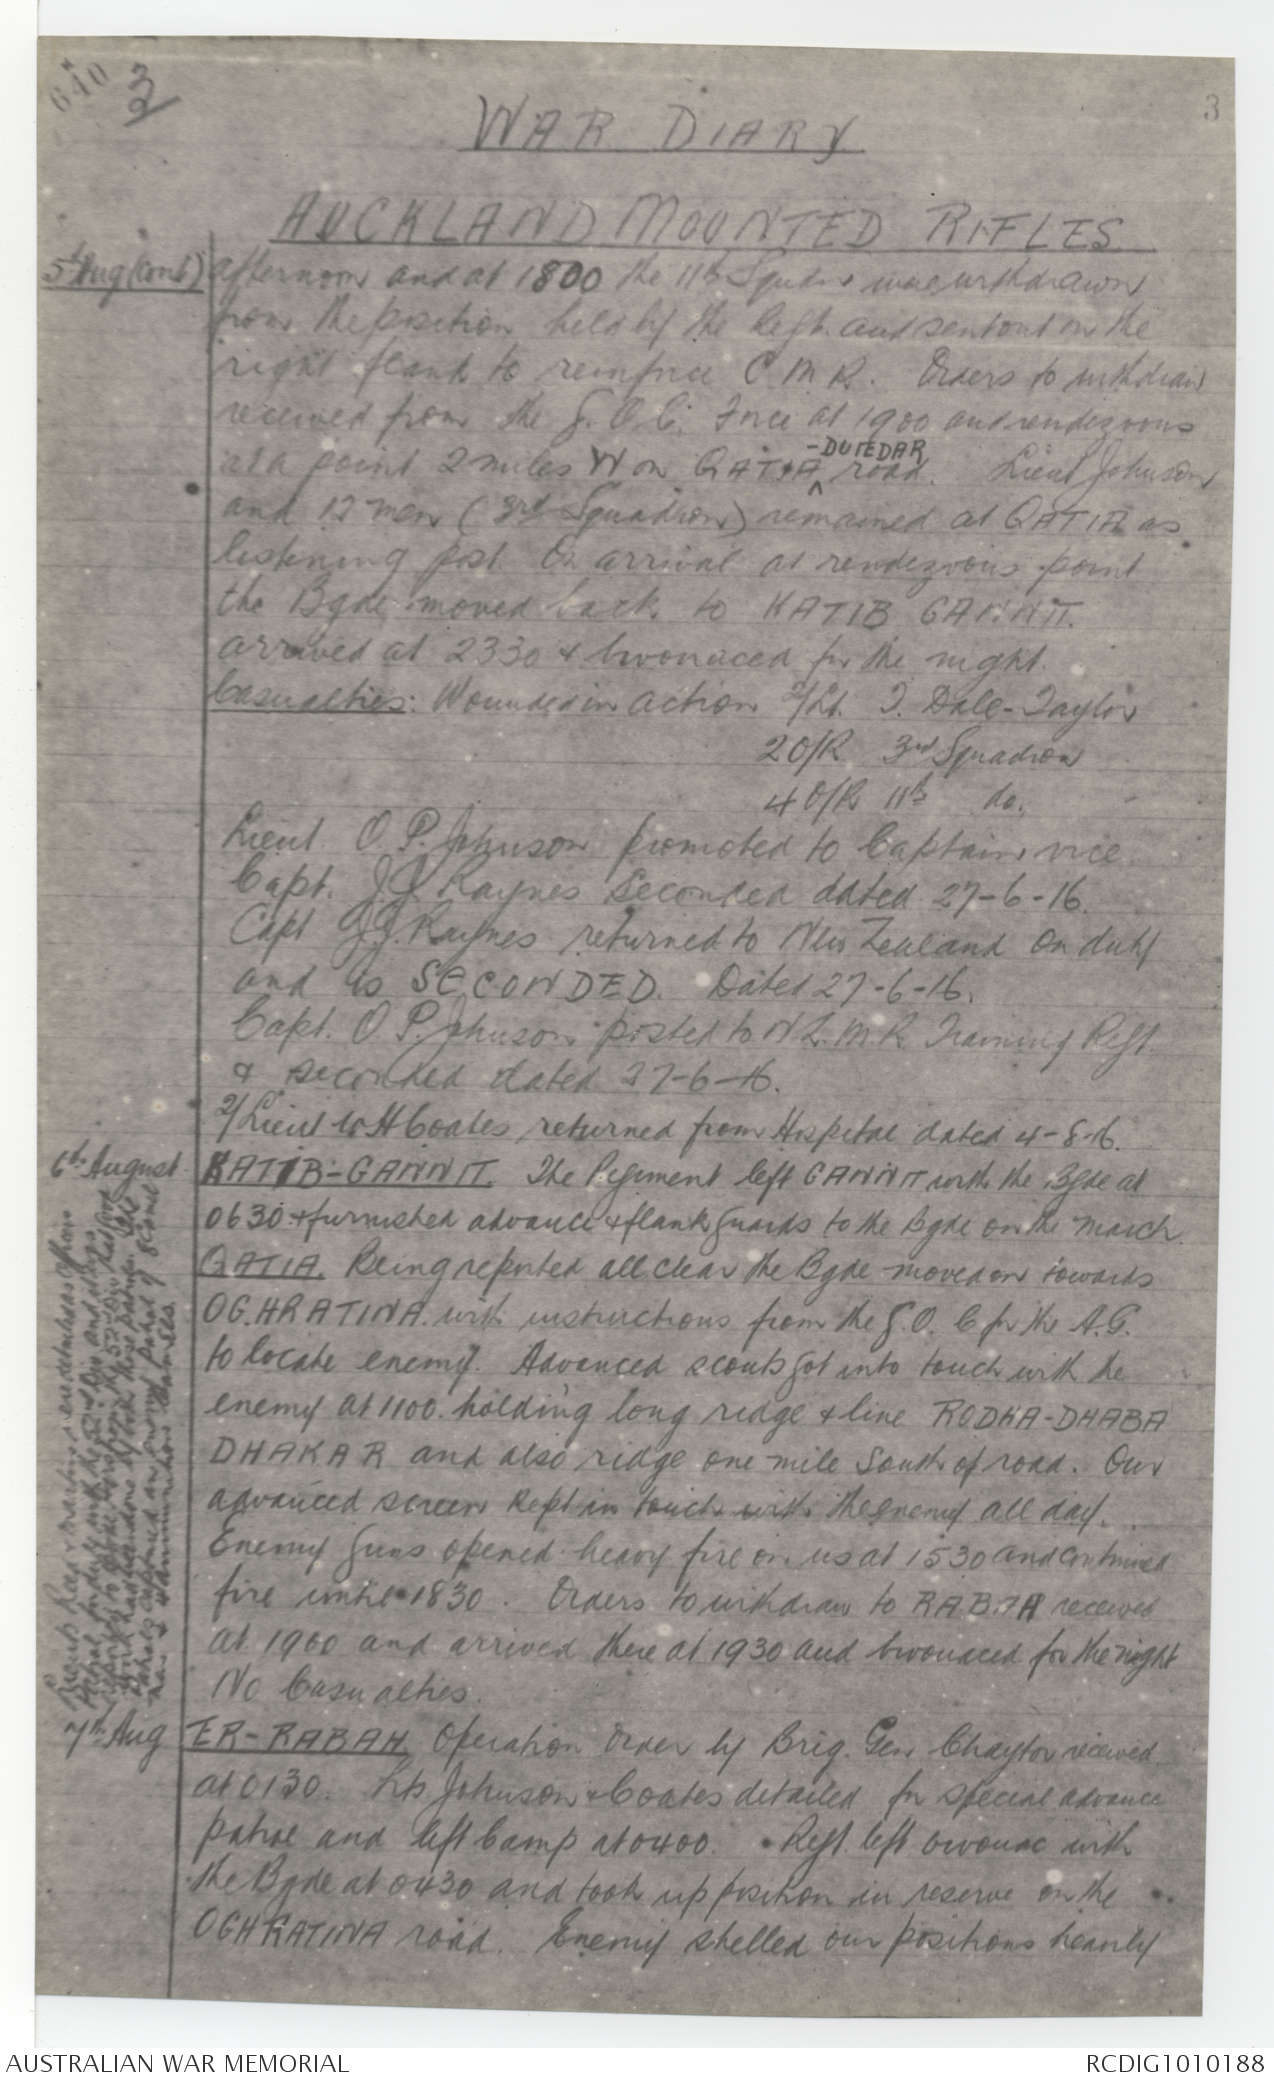 640
3
3
WAR DIARY
AUCKLAND MOUNTED RIFLES
5th Aug (cont)
afternoon and at 1800 the 11th Squdn was withdrawn
from the position held by the Regt. and sent out on the
right flank to reinforce C M R. Orders to withdraw
received from the G.O.C. Force at 1900 and rendezvous
at a point 2 miles W on QATIA -DUEDAR road. Lieut Johnson
and 12 men (3rd Squadron) remained at QATIA as
listening post. On arrival at rendezvous point
the Bgde moved back to KATIB GANNIT.
arrived at 2330 & bivouaced for the night.
Casualties: Wounded in action 2/Lt. T. Dale-Taylor
2 O/R 3rd Squadron
4 O/R 11th do.
Lieut. O. P. Johnson promoted to Captain vice
Capt. J.J. Raynes seconded dated 27-6-16.
Capt J.J. Raynes returned to New Zealand on duty
and is SECONDED. Dated 27-6-16.
Capt. O. P. Johnson posted to N.Z.M.R. Training Regt.
& seconded dated 27-6-16.
2/Lieut W H Coates returned from Hospital dated 4-8-16.
6th August
KATIB-GANNIT. The Regiment left GANNIT with the Bgde at
0630 & furnished advance & flank guards to the Bgde on the march.
QATIA. Being reported all clear the Bgde moved on towards
OGHRATINA with instructions from the G.O.C for the A.G.
to locate enemy. Advanced scouts got into touch with the
enemy at 1100. holding long ridge & line RODHA-DHABA
DHAKAR and also ridge one mile South of road. Our
advanced screen kept in touch with the enemy all day.
Enemy guns opened heavy fire on us at 1530 and continued
fire until 1830. Orders to withdraw to RABAH received
at 1900 and arrived there at 1930 and bivouaced for the night
No Casualties.
7th Aug
ER-RABAH. Operation Order by Brig. Gen Chaytor received
at 0130. Lts Johnson & Coates detailed for special advance
patrol and left Camp at 0400. Regt. left bivouac with
the Bgde at 0430 and took up position in reserve on the
OGHRATINA road. Enemy shelled our positions heavily
AUSTRALIAN WAR MEMORIAL
RCDIG1010188